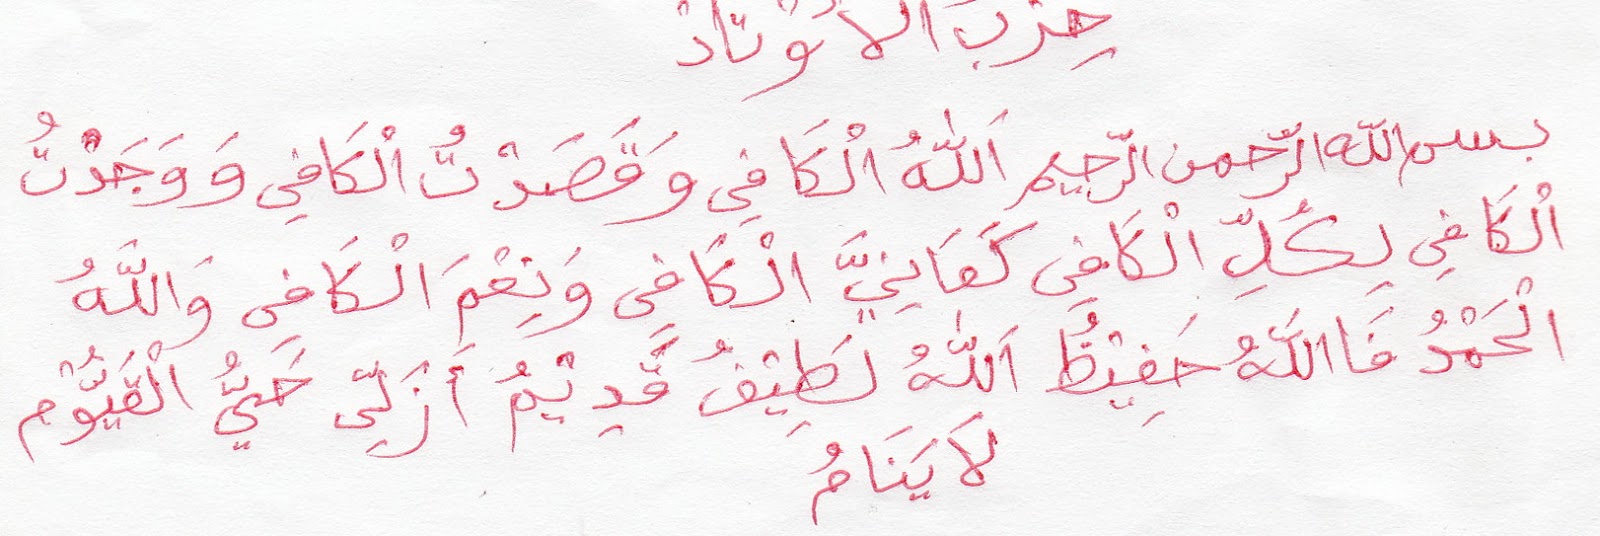 حِزْبُ الْأَوْتَادْ
بسم الله الرّحمن الرّحيم اَللّٰهُ الْكَافِى وَقَصَدْتُ الْكَافِى وَ وَجَدْتُ
الْكَافِى لِكُلِّ الْكَافِى كَفَانِيَّ الْكَافِى وَنِعْمَ الْكَافِى وَاللّٰهُ
الْحَمْدُ فَااللّٰهُ حَفِيْظٌ اَللّٰهُ لَطِيْفُ قَدِيْمُ أَزَلِىّ حَيُّ الْقَيُّوْم
لَا يَنَامُ